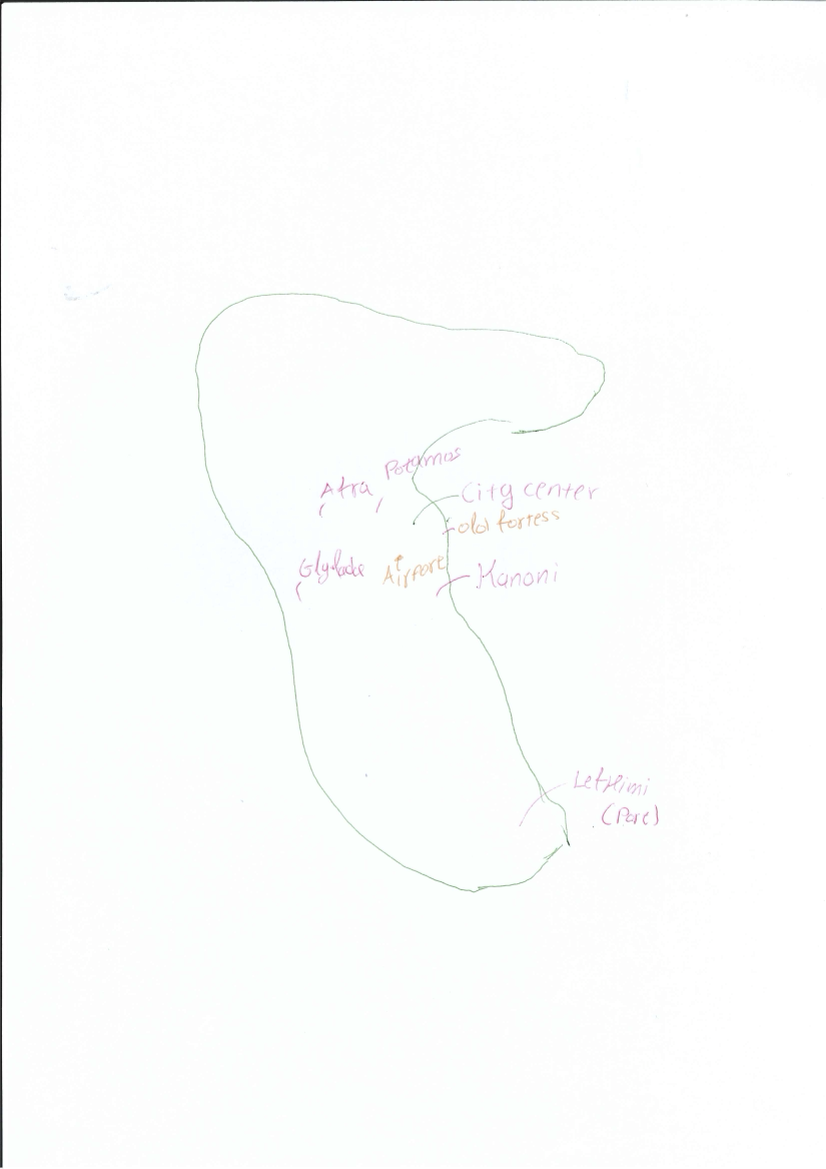 Potamos
Afra
City center
old fortess
Glyfada
Airport
Kanoni
Lefkimi
(Port)